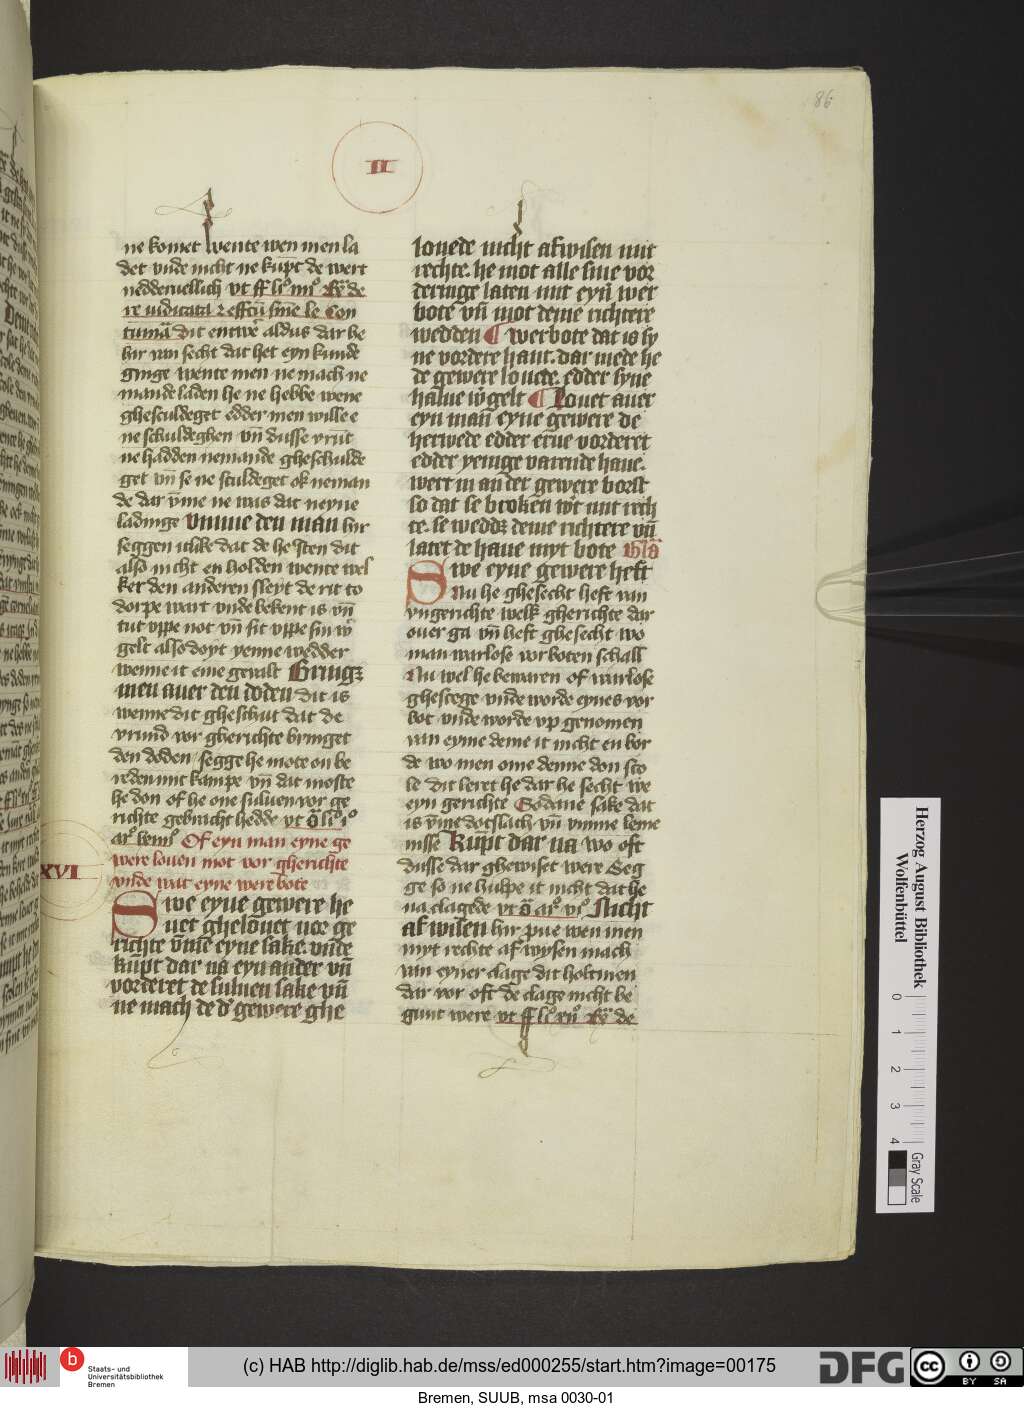 86
II
ne komet wente wen men la
det vnde nicht ne kūpt de wert
nedderuellich vt ff li° iiii° de
re iudicata
tumā dit entwer aldus dar be
hir van secht dat het eyn kunde
ginge wente men ne mach ne
mande laden he ne hebbe wene
ghesculdeget edder men wille e
ne schuldeghen vn̄ dusse vrūt
ne hadden nemande gheschulde
get vn̄ se ne sculdeget ok neman
de dar v̄me ne was dat neyne
ladinge Vmme den man hir
seggen itlike dat de hesten dit
also nicht en holden wente wel
ker den anderen sleyt de rit to
dorpe wart vnde bekent is vn̄
tut vppe not vn̄ sit vppe sin
gelt also doyt yenne wedder
wenne it eme gevalt Bringz
men auer den doden dit is
wenne dit gheschut dat de
vrund vor gherichte bringet
den doden segge he mote on be
reden mit kampe vn̄ dat moste
he don of he one suluen vor ge
richte gebracht hedde vt li° i°
ar° Of eyn man eyne ge
were louen mot vor gherichte
vnde wat eyne were bote
XVI
Swe eyne gewere he
uet ghelouet uor ge
richte v̄me eyne sake vnde
kūpt dar na eyn ander vn̄
vorderet de suluen sake vn̄
ne mach de gewere ghe
louede nicht afwisen mit
rechte. he mot alle sine vor
deringe laten mit eyn̄ wer
bote vn̄ mot deme richtere
wedden ¶ Werbote dat is sy
ne vordere hant. dar mede he
de gewere louete. edder syne
halue gelt ¶ Louet auer
eyn man̄ eyne gewere de
herwede edder erue vorderet
edder yenige varende haue.
wert in an der gewere borst
so dat se broken mit rech
te. se wedde deme richtere vn̄
latet de haue myt bote Glā
Swe eyne gewere heft
Nu he ghesecht heft van
vngerichte welk gherichte dar
ouer ga vn̄ heft ghesecht wo
man warlose vorboten schall
Nu wel he bewaren of warlose
ghestege vnde worde eynes vor
bot vnde worde vp genomen
van eyme deme it nicht en bor
de wo men ome denne don sco
le dit leret he dar he secht we
eyn gerichte Sodane sake dat
is v̄me dotslach vn̄ vmme leme
nisse Kūpt dar na wo oft
dusse dar ghewiset were Seg
ge so ne hulpe it nicht dat he
na clagede vt ar° vi° Nicht
af wisen hir pue wen men
myt rechte af wysen mach
van eyner clage dit holt men
dar vor oft de clage nicht be
gunt were vt ff li° de
Herzog August Bibliothek
Wolfenbüttel
0 1 2 3 4
Gray Scale
b
Staats- und
Universitätsbibliothek
Bremen
(c) HAB http://diglib.hab.de/mss/ed000255/start.htm?image=00175
DFG
cc
BY SA
Bremen, SUUB, msa 0030-01